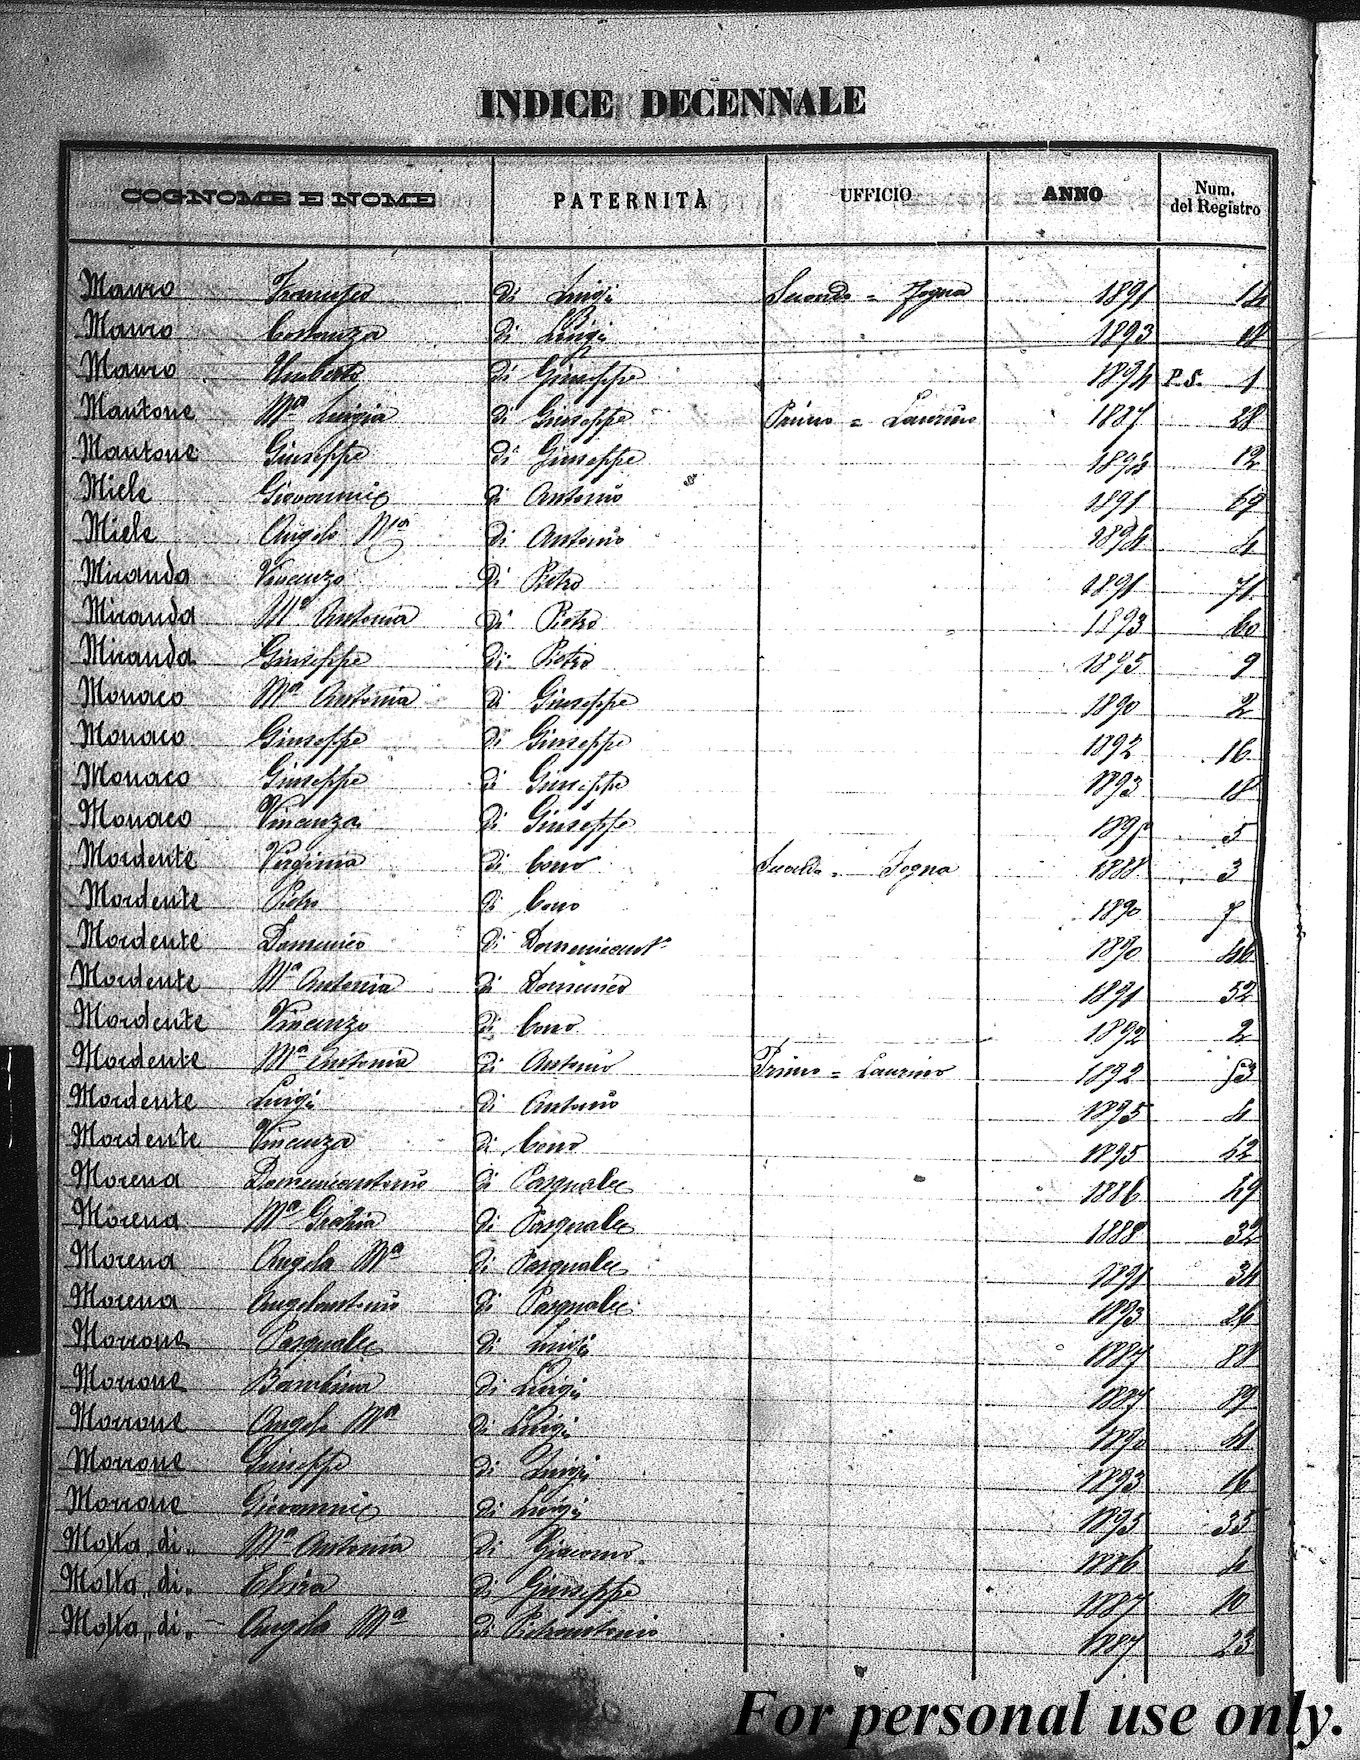 INDICE DECENNALE
COGNOME E NOME PATERNITÀ UFFICIO ANNO Num. del Registro
Mauro Francesco di Luigi Secondo = Fogna 1891 14
Mauro Costanza di Luigi 1893
Mauro Umberto di Giuseppe 1894 P. S. 1
Mautone Mª Luigia di Giuseppe Primo = Laurino 1887 28
Mautone Giuseppe di Giuseppe 1893 12
Miele Giovannie di Antonio 1891 69
Miele Angelo Mª di Antonio 1894 4
Miranda Vincenzo di Pietro 1891 71
Miranda Mª Antonia di Pietro 1893 60
Miranda Giuseppe di Pietro 1895 9
Monaco Mª Antonia di Giuseppe 1890 2
Monaco Giuseppe di Giuseppe 1892 16
Monaco Giuseppe di Giuseppe 1893 18
Monaco Vincenza di Giuseppe 5
Mordente Virginia di Cono Secondo = Fogna 1888 3
Mordente Pietro di Cono 1890 7
Mordente Domenico di Domenicant° 1890 46
Mordente Mª Antonia di Domenico 1891 52
Mordente Vincenzo di Cono 1892 2
Mordente Mª Antonia di Antonio Primo = Laurino 1892 53
Mordente Luigi di Antonio 1895 4
Mordente Vincenza di Cono 1895 42
Morena Domenicantonio di Pasquale 1886 49
Morena Mª Grazia di Pasquale 1888 32
Morena Angela Mª di Pasquale 1891 34
Morena Angelantonio di Pasquale 1893 26
Morrone Pasquale di Luigi 1887 88
Morrone Bambina di Luigi 1887 89
Morrone Angelo Mª di Luigi 1890
Morrone Giuseppe di Luigi 1893 16
Morrone Giovannie di Luigi 1895 35
Motta „ di „ Mª Antonia di Giacomo 1886 4
Motta „ di „ Elvira di Giuseppe 1887 10
Motta „ di „ Angela Mª di Pietrantonio 1887 23
For personal use only.